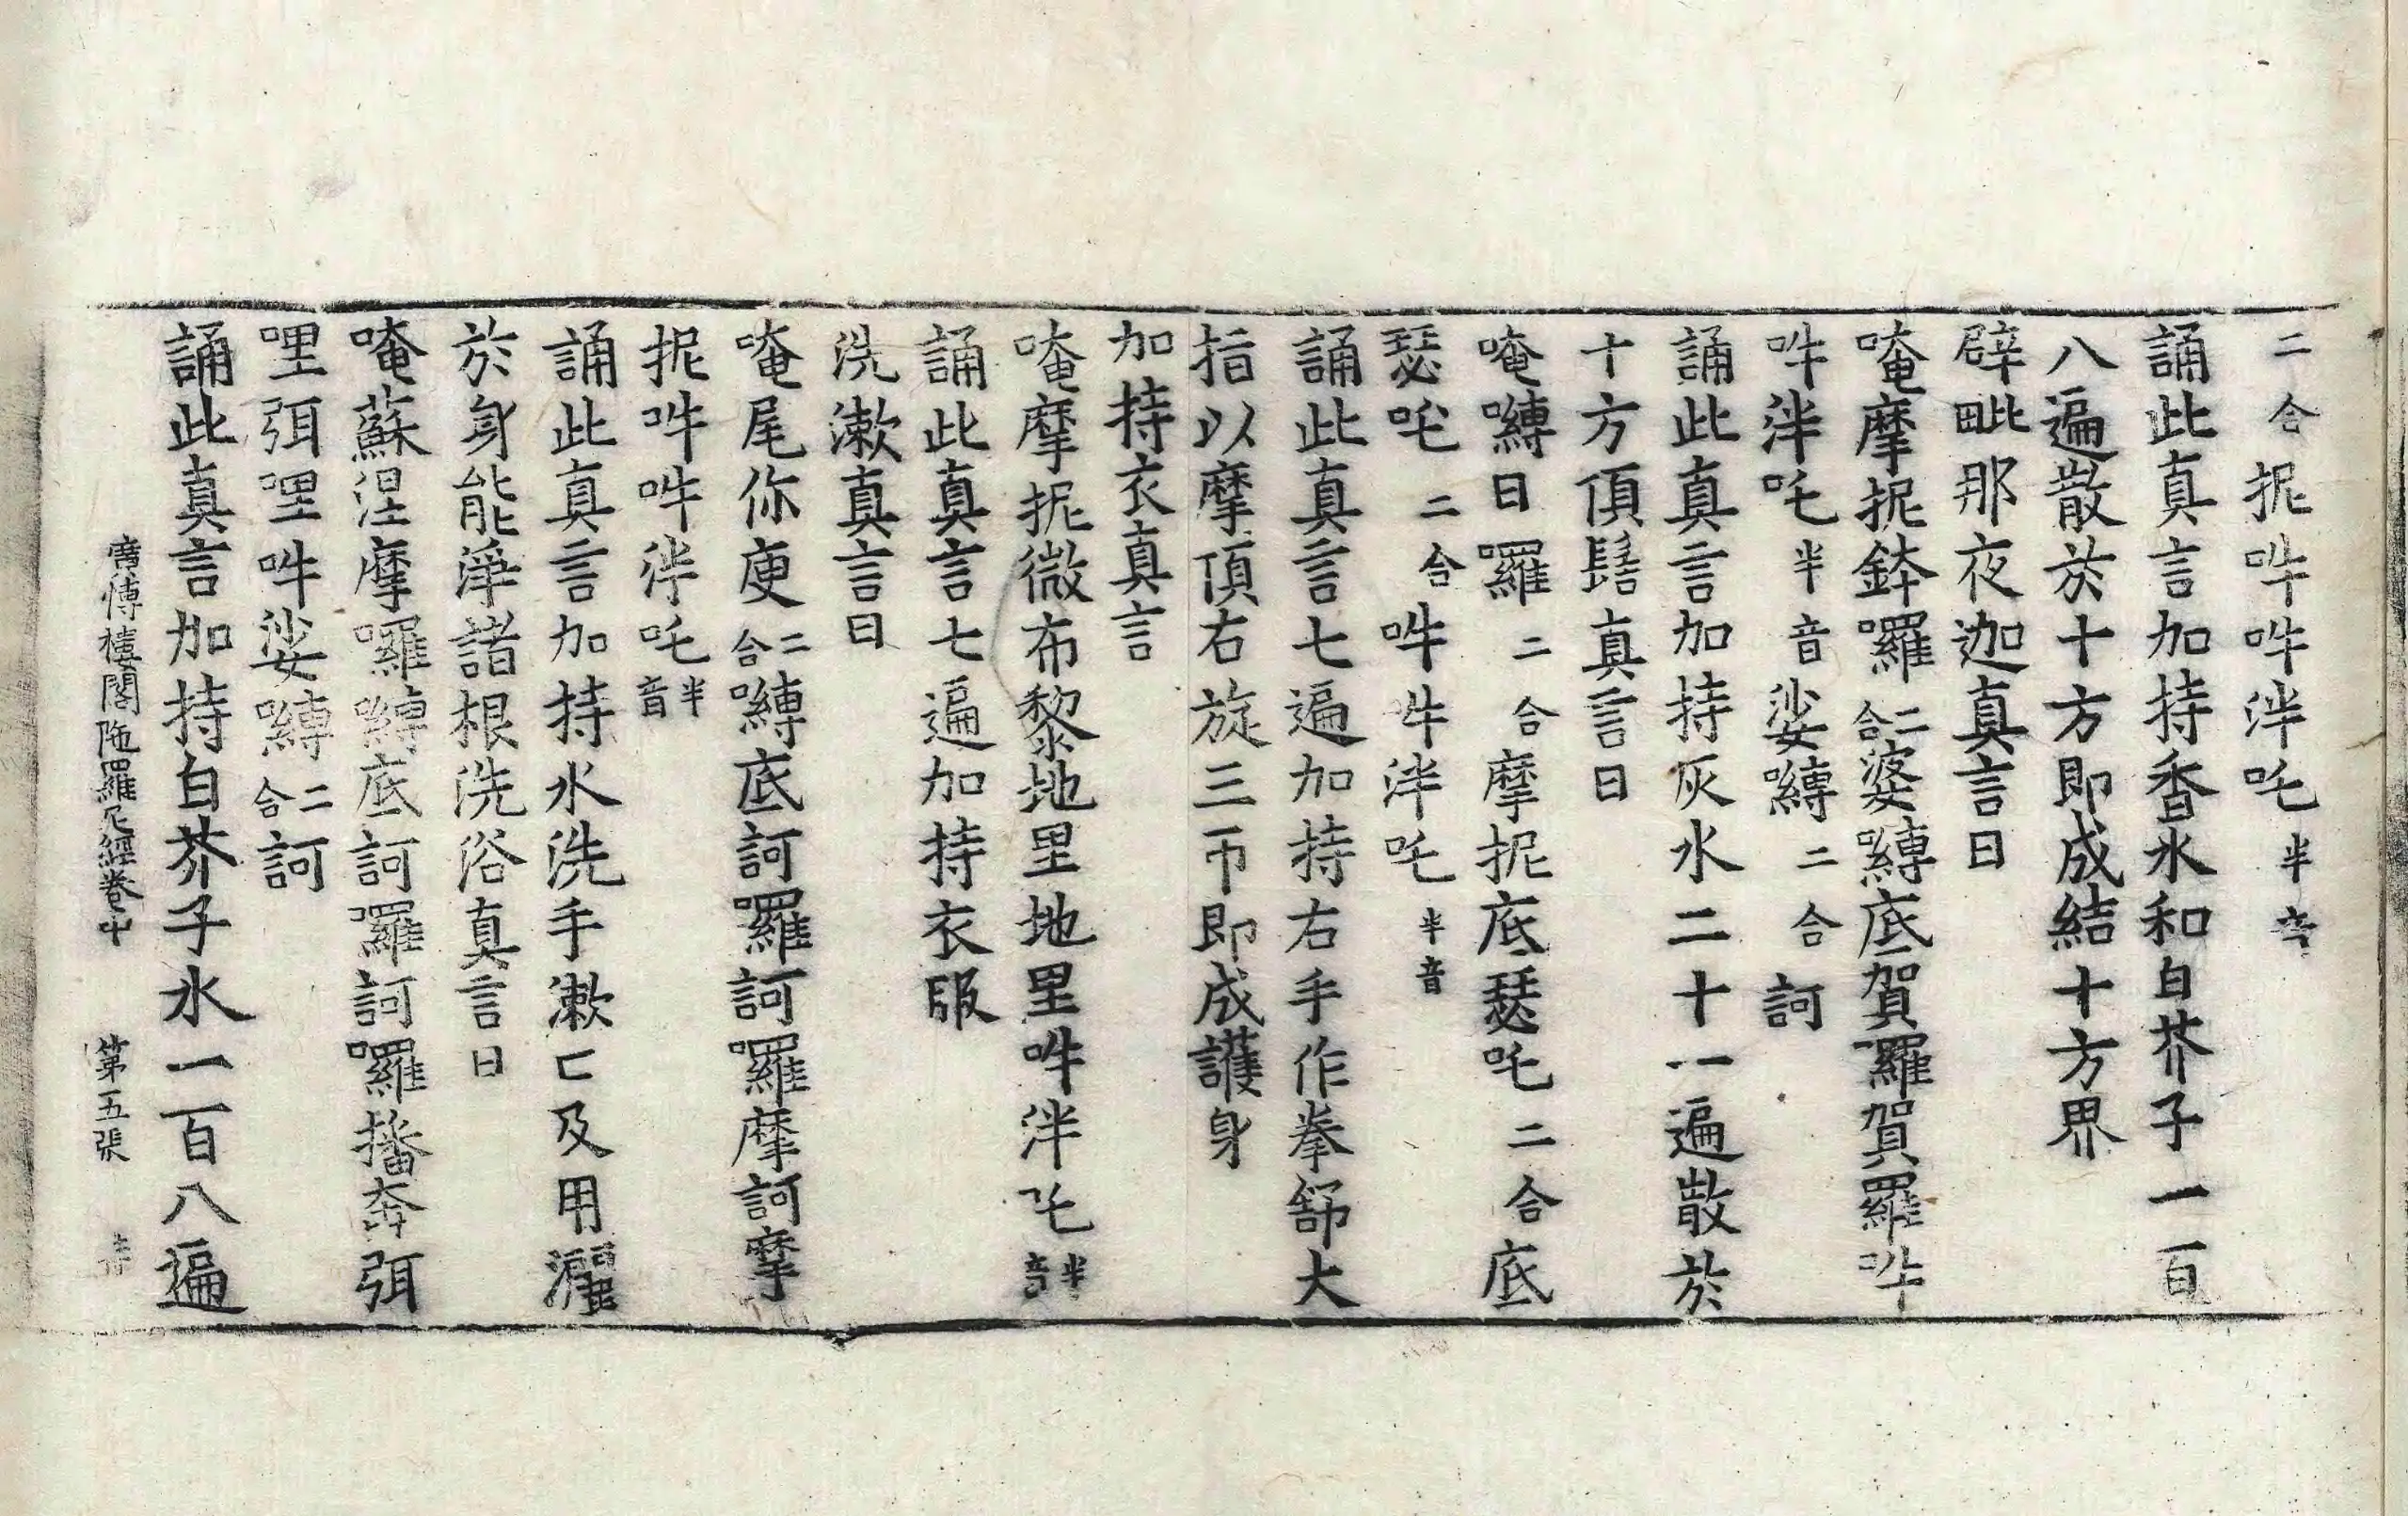 二合抳吽吽泮吒半音
誦此真言加持香水和白芥子一百
八遍散於十方即成結十方界
辟毗那夜迦真言曰
唵摩抳鉢囉二合婆嚩底賀羅賀羅吽
吽泮吒半音娑嚩二合訶
誦此真言加持灰水二十一遍散於
十方頂髻真言曰
唵嚩日囉二合摩抳底瑟吒二合底
瑟吒二合吽吽泮吒半音
誦此真言七遍加持右手作拳舒大
指以摩頂右旋三帀即成護身
加持衣真言
唵摩抳微布黎地里地里吽泮吒半音
誦此真言七遍加持衣服
洗漱真言曰
唵尾你庾二合嚩底訶囉訶囉摩訶摩
抳吽吽泮吒半音
誦此真言加持水洗手漱口及用灑
於身能淨諸根洗浴真言曰
唵蘇涅摩囉嚩底訶囉訶囉播奔弭
哩弭哩吽娑嚩二合訶
誦此真言加持白芥子水一百八遍
廣博樓閣陁羅尼經卷中 第五張